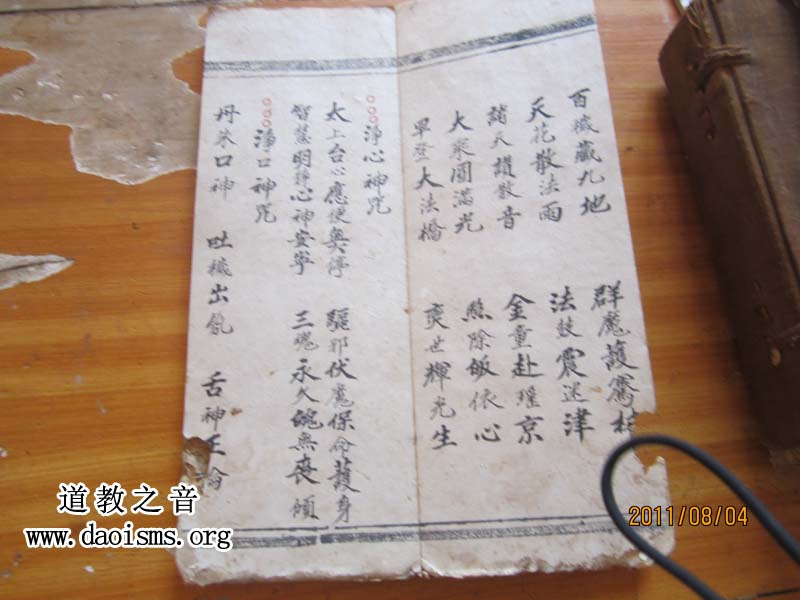 百穢藏九地 群魔護騫
天花散法雨 法鼓震迷津
諸天讃散音 金童赴瑤京
大衆圓滿光 除皈依心
早登大法橋 奕世輝光生
○○○淨心神咒
太上台心應便無停 驅邪伏魔保命護身
智慧明靜心神安寧 三魂永久魄無喪傾
○○○淨口神咒
丹朱口神 吐穢出氛 舌神
道教之音
www.daoisms.org
2011/08/04